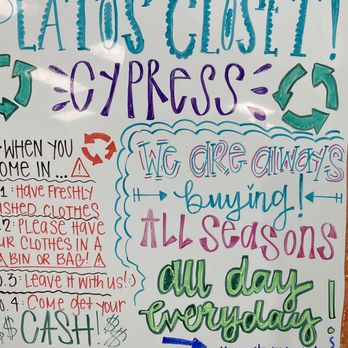 PLATOS CLOSET!
CYPRESS
WHEN YOU
COME IN...
1: HAVE FRESHLY
WASHED CLOTHES
.2: PLEASE HAVE
YOUR CLOTHES IN A
BIN OR BAG!
O.3: LEAVE IT WITH US! :)
O.4: COME GET YOUR
$ CASH! $
WE ARE always
buying!
All SEASONS
all day
everyday!